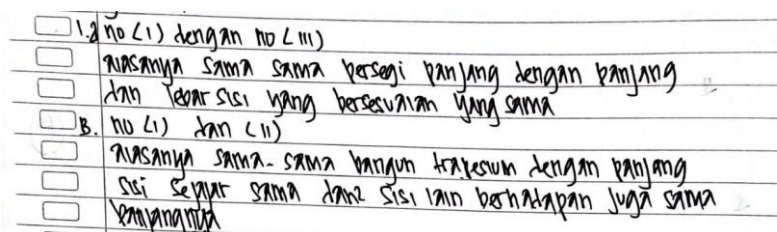 1.a no (i) dengan no (iii)
alasanya sama sama persegi panjang dengan panjang
dan lebar sisi yang bersesuaian yang sama
B. no (i) dan (ii)
alasanya sama-sama bangun trapesium dengan panjang
sisi sejajar sama dan2 sisi lain berhadapan juga sama
panjangnya